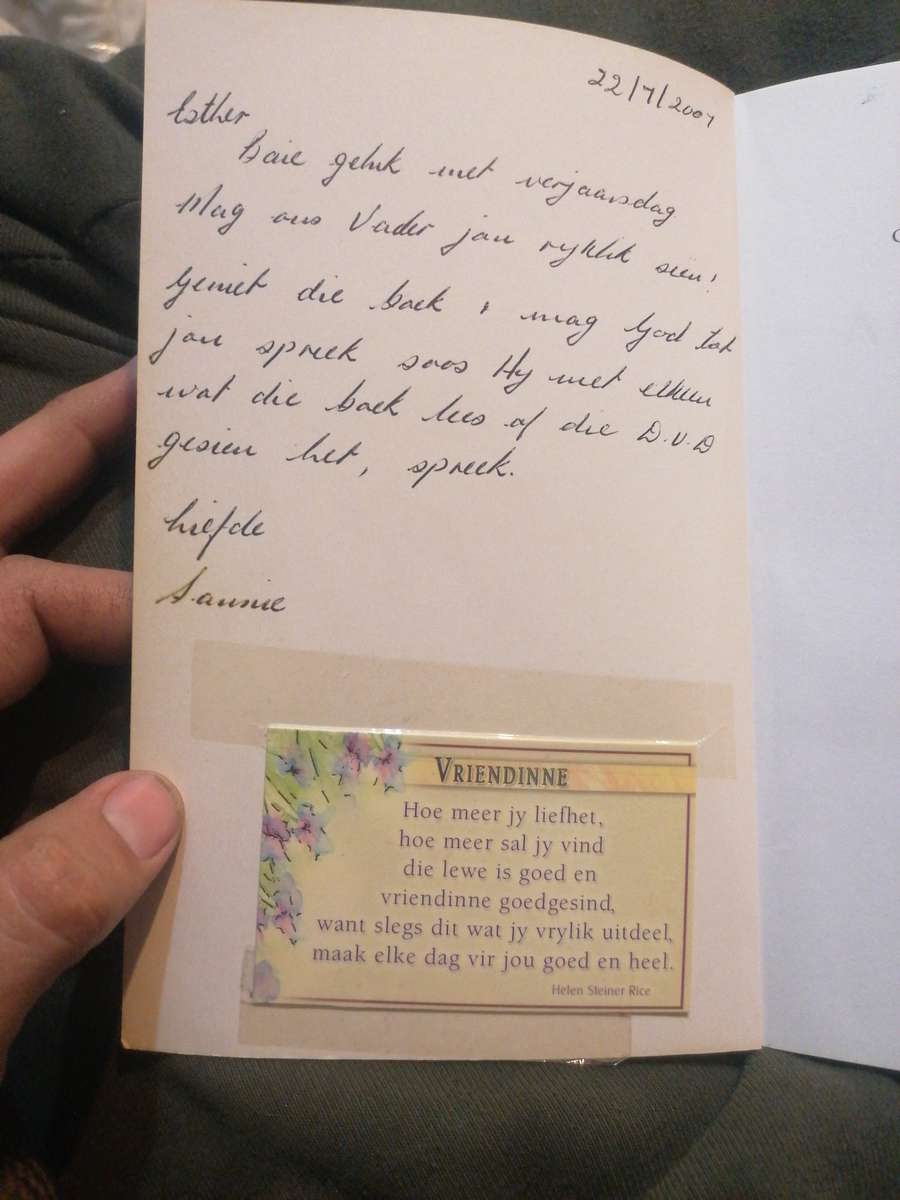 22/7/2007
Esther
Baie geluk met verjaarsdag
Mag ons Vader jou ryklik seën!
Geniet die boek & mag God tot
jou spreek soos Hy met elkeen
wat die boek lees of die D.V.D
gesien het, spreek.
Liefde
Sannie
VRIENDINNE
Hoe meer jy liefhet,
hoe meer sal jy vind
die lewe is goed en
vriendinne goedgesind,
want slegs dit wat jy vrylik uitdeel,
maak elke dag vir jou goed en heel.
Helen Steiner Rice